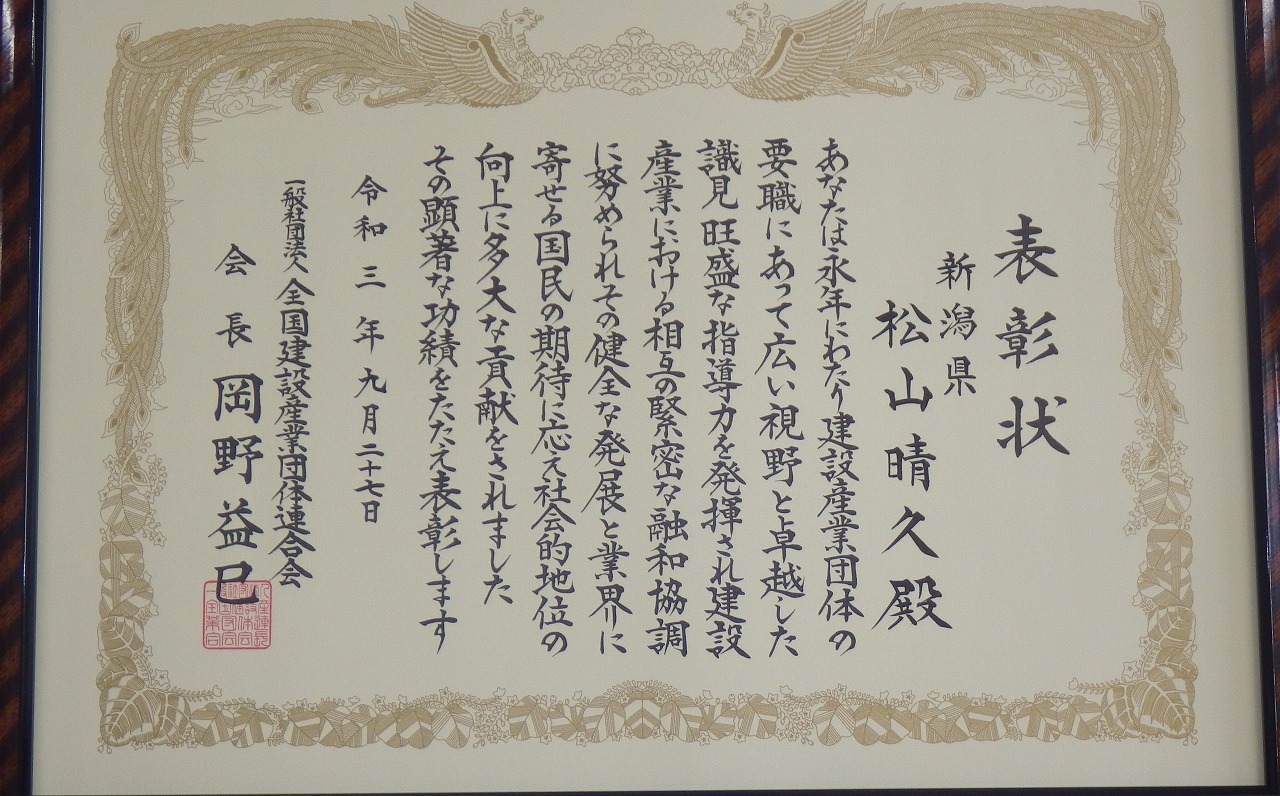 表彰状
新潟県
松山晴久殿
あなたは永年にわたり建設産業団体の
要職にあって広い視野と卓越した
識見旺盛な指導力を発揮され建設
産業における相互の緊密な融和協調
に努められその健全な発展と業界に
寄せる国民の期待に応え社会的地位の
向上に多大な貢献をされました
その顕著な功績をたたえ表彰します
令和三年九月二十七日
一般社団法人全国建設産業団体連合会
会長岡野益巳